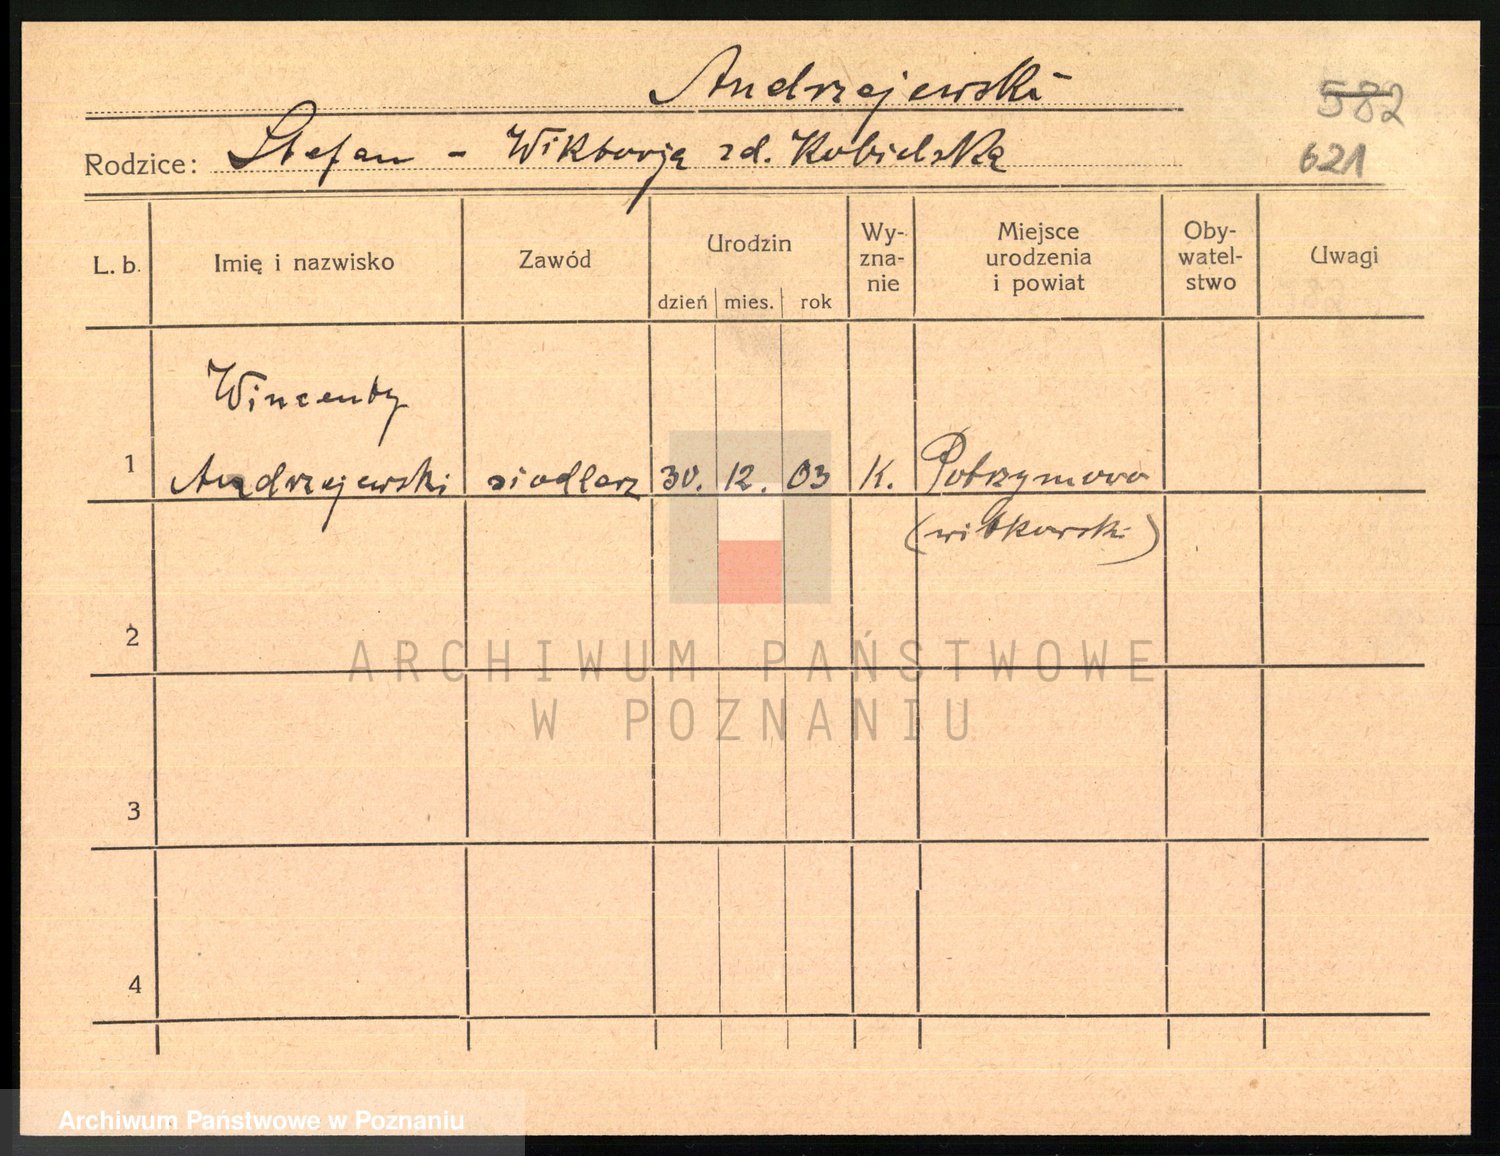 Andrzejewski
582
Rodzice: Stefan - Wiktorją zd. Kobielską
621
L. b. Imię i nazwisko Zawód Urodzin dzień mies. rok Wy-zna-nie Miejsce urodzenia i powiat Oby-watel-stwo Uwagi
Wincenty
1 Andrzejewski siodlarz 30. 12. 03 K. Potrzymowo
(witkowski)
2
ARCHIWUM PAŃSTWOWE
W POZNANIU
3
4
Archiwum Państwowe w Poznaniu